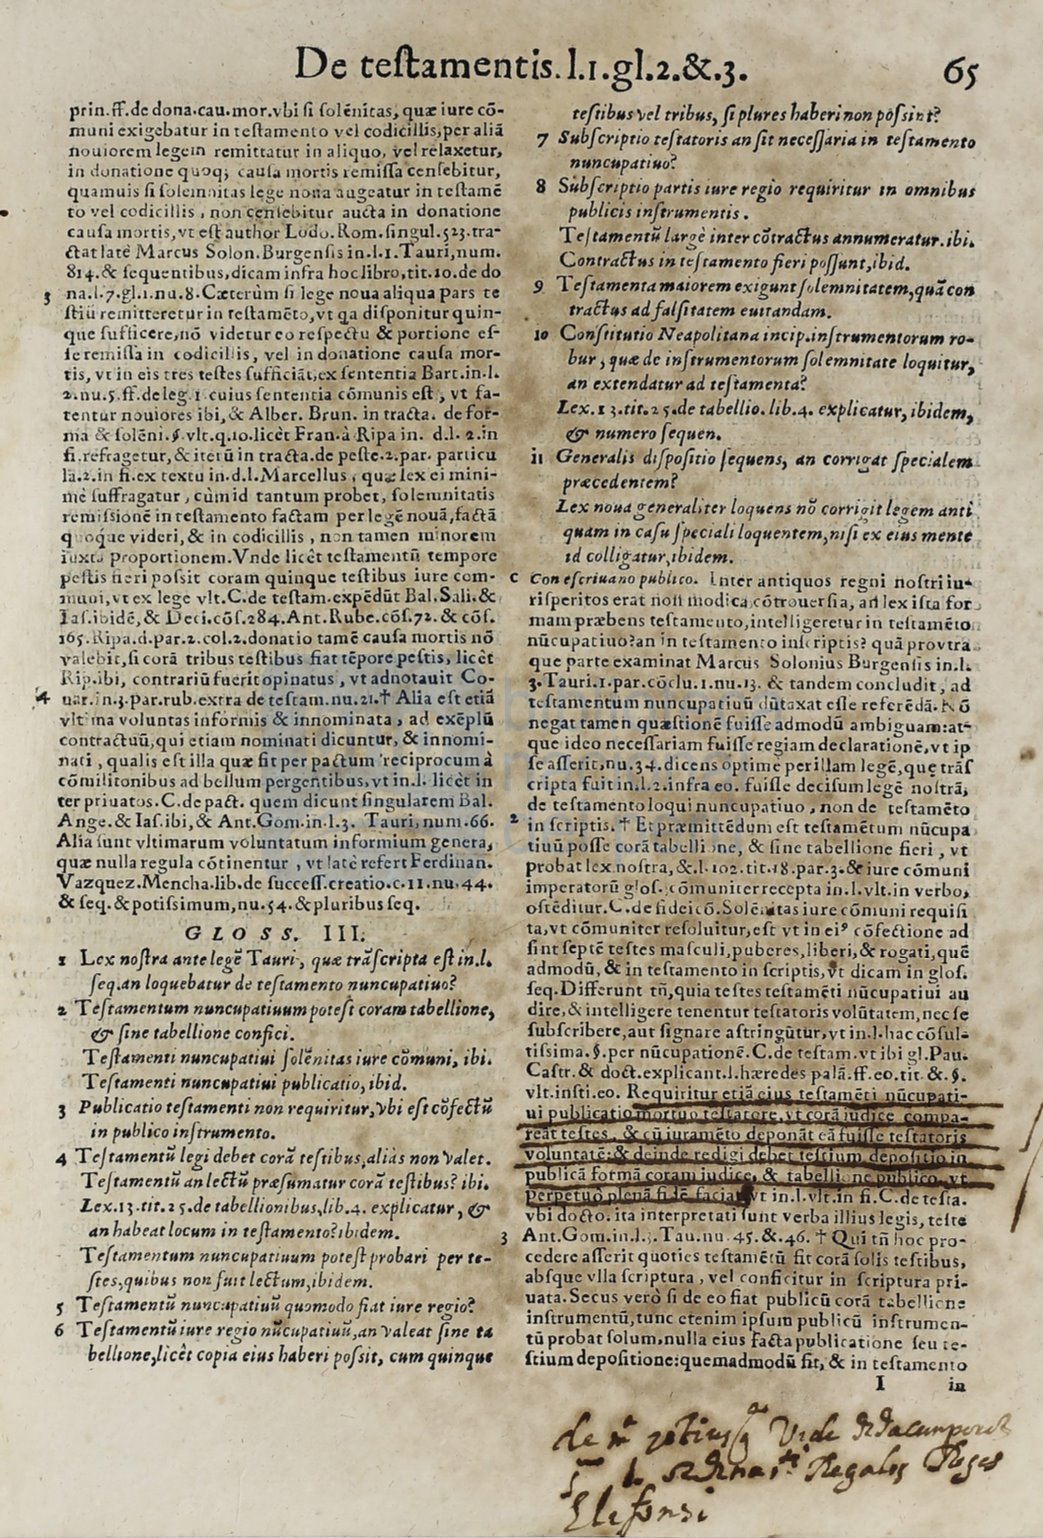 De testamentis. l.1. gl.2.&.3.
65
prin.ff.de dona.cau.mor.vbi si solẽnitas, quæ iure cõ-
muni exigebatur in testamento vel codicillis, per aliã
nouiorem legem remittatur in aliquo, vel relaxetur,
in donatione quoq; causa mortis remissa censebitur,
quamuis si solemnitas lege noua augeatur in testamẽ
to vel codicillis, non censebitur aucta in donatione
causa mortis, vt est author Lodo. Rom. singul. 523. tra-
ctat latè Marcus Solon. Burgensis in.l.1. Tauri, num.
814. & sequentibus, dicam infra hoc libro, tit.10. de do
3 na.l.7.gl.1.nu.8. Cæterùm si lege noua aliqua pars te
stiũ remitteretur in testamẽto, vt qa disponitur quin-
que sufficere, nõ videtur eo respectu & portione es-
se remissa in codicillis, vel in donatione causa mor-
tis, vt in eis tres testes sufficiãt, ex sententia Bart. in.l.
2.nu.5.ff.de leg.1. cuius sententia cõmunis est, vt fa-
tentur nouiores ibi, & Alber. Brun. in tracta. de for-
ma & solẽni.§.vlt.q.10. licèt Fran. à Ripa in. d.l. 2. in
fi. refragetur, & iterũ in tracta. de peste. 2. par. particu
la.2. in fi. ex textu in.d.l. Marcellus, quæ lex ei mini-
mè suffragatur, cùm id tantum probet, solemnitatis
remissionẽ in testamento factam per legẽ nouã, factã
quoque videri, & in codicillis, non tamen minorem
iuxta proportionem. Vnde licèt testamentũ tempore
pestis fieri possit coram quinque testibus iure com-
muni, vt ex lege vlt. C. de testam. expẽdũt Bal. Sali. &
Ias. ibidẽ, & Deci. cõs. 284. Ant. Rube. cõs. 72. & cõs.
165. Ripa. d. par. 2. col. 2. donatio tamẽ causa mortis nõ
valebit, si corã tribus testibus fiat tẽpore pestis, licèt
Rip. ibi, contrariũ fuerit opinatus, vt adnotauit Co-
4 uar. in. 3. par. rub. extra de testam. nu. 21. † Alia est etiã
vltima voluntas informis & innominata, ad exẽplũ
contractuũ, qui etiam nominati dicuntur, & innomi-
nati, qualis est illa quæ fit per pactum reciprocum à
cõmilitonibus ad bellum pergentibus, vt in.l. licèt in
ter priuatos. C. de pact. quem dicunt singularem Bal.
Ange. & Ias. ibi, & Ant. Gom. in.l.3. Tauri, num. 66.
Alia sunt vltimarum voluntatum informium genera,
quæ nulla regula cõtinentur, vt latè refert Ferdinan.
Vazquez. Mencha. lib. de success. creatio. c. 11. nu. 44.
& seq. & potissimum, nu. 54. & pluribus seq.
GLOSS. III.
1 Lex nostra ante legẽ Tauri, quæ trãscripta est in.l.
seq. an loquebatur de testamento nuncupatiuo?
2 Testamentum nuncupatiuum potest coram tabellione,
& sine tabellione confici.
Testamenti nuncupatiui solẽnitas iure cõmuni, ibi.
Testamenti nuncupatiui publicatio, ibid.
3 Publicatio testamenti non requiritur, vbi est cõfectũ
in publico instrumento.
4 Testamentũ legi debet corã testibus, aliàs non valet.
Testamentũ an lectũ præsumatur corã testibus? ibi.
Lex. 13. tit. 25. de tabellionibus, lib. 4. explicatur, &
an habeat locum in testamento? ibidem.
Testamentum nuncupatiuum potest probari per te-
stes, quibus non fuit lectum, ibidem.
5 Testamentũ nuncupatiuũ quomodo fiat iure regio?
6 Testamentũ iure regio nũcupatiuũ, an valeat sine ta
bellione, licèt copia eius haberi possit, cum quinque
testibus vel tribus, si plures haberi non possint?
7 Subscriptio testatoris an sit necessaria in testamento
nuncupatiuo?
8 Subscriptio partis iure regio requiritur in omnibus
publicis instrumentis.
Testamentũ largè inter cõtractus annumeratur. ibi.
Contractus in testamento fieri possunt, ibid.
9 Testamenta maiorem exigunt solemnitatem, quã con
tractus ad falsitatem euitandam.
10 Constitutio Neapolitana incip. instrumentorum ro-
bur, quæ de instrumentorum solemnitate loquitur,
an extendatur ad testamenta?
Lex. 13. tit. 25. de tabellio. lib. 4. explicatur, ibidem,
& numero sequen.
11 Generalis dispositio sequens, an corrigat specialem
præcedentem?
Lex noua generaliter loquens nõ corrigit legem anti
quam in casu speciali loquentem, nisi ex eius mente
id colligatur, ibidem.
c Con escriuano publico. Inter antiquos regni nostri iu-
risperitos erat non modica cõtrouersia, an lex ista for
mam præbens testamento, intelligeretur in testamẽto
nũcupatiuo? an in testamento inscriptis? quã pro vtra
que parte examinat Marcus Solonius Burgensis in.l.
3. Tauri. 1. par. cõclu. 1. nu. 13. & tandem concludit, ad
testamentum nuncupatiuũ dũtaxat esse referẽdã. Nõ
negat tamen quæstionẽ fuisse admodũ ambiguam: at-
que ideo necessariam fuisse regiam declarationẽ, vt ip
se asserit, nu. 34. dicens optimè per illam legẽ, que trãs
cripta fuit in.l.2. infra eo. fuisse decisum legẽ nostrã,
de testamento loqui nuncupatiuo, non de testamẽto
2 in scriptis. † Et præmittẽdum est testamẽtum nũcupa
tiuũ posse corã tabellione, & sine tabellione fieri, vt
probat lex nostra, &.l. 102. tit. 18. par. 3. & iure cõmuni
imperatorũ glos. cõmuniter recepta in.l.vlt. in verbo,
ostẽditur. C. de fideicõ. Solẽnitas iure cõmuni requisi
ta, vt cõmuniter resoluitur, est vt in eiꝰ cõfectione ad
sint septẽ testes masculi, puberes, liberi, & rogati, quẽ
admodũ, & in testamento in scriptis, vt dicam in glos.
seq. Differunt tñ, quia testes testamẽti nũcupatiui au
dire, & intelligere tenentur testatoris volũtatem, nec se
subscribere, aut signare astringũtur, vt in.l. hac cõsul-
tissima.§. per nũcupationẽ. C. de testam. vt ibi gl. Pau.
Castr. & doct. explicant. l. hæredes palã. ff. eo. tit. &.§.
vlt. insti. eo. Requiritur etiã eius testamẽti nũcupati-
ui publicatio mortuo testatore, vt corã iudice compa-
reãt testes, & cũ iuramẽto deponãt eã fuisse testatoris
voluntatẽ: & deinde redigi debet testium depositio in
publicã formã coram iudice, & tabellione publico, vt
perpetuò plenã fidẽ faciat, vt in.l.vlt. in fi. C. de testa.
vbi docto. ita interpretati sunt verba illius legis, teste
3 Ant. Gom. in.l.3. Tau. nu. 45. &. 46. † Qui tñ hoc pro-
cedere asserit quoties testamẽtũ fit corã solis testibus,
absque vlla scriptura, vel conficitur in scriptura pri-
uata. Secus verò si de eo fiat publicũ corã tabellione
instrumentũ, tunc etenim ipsum publicũ instrumen-
tũ probat solum, nulla eius facta publicatione seu te-
stium depositione: quemadmodũ fit, & in testamento
I in
Vide
Regales Reges